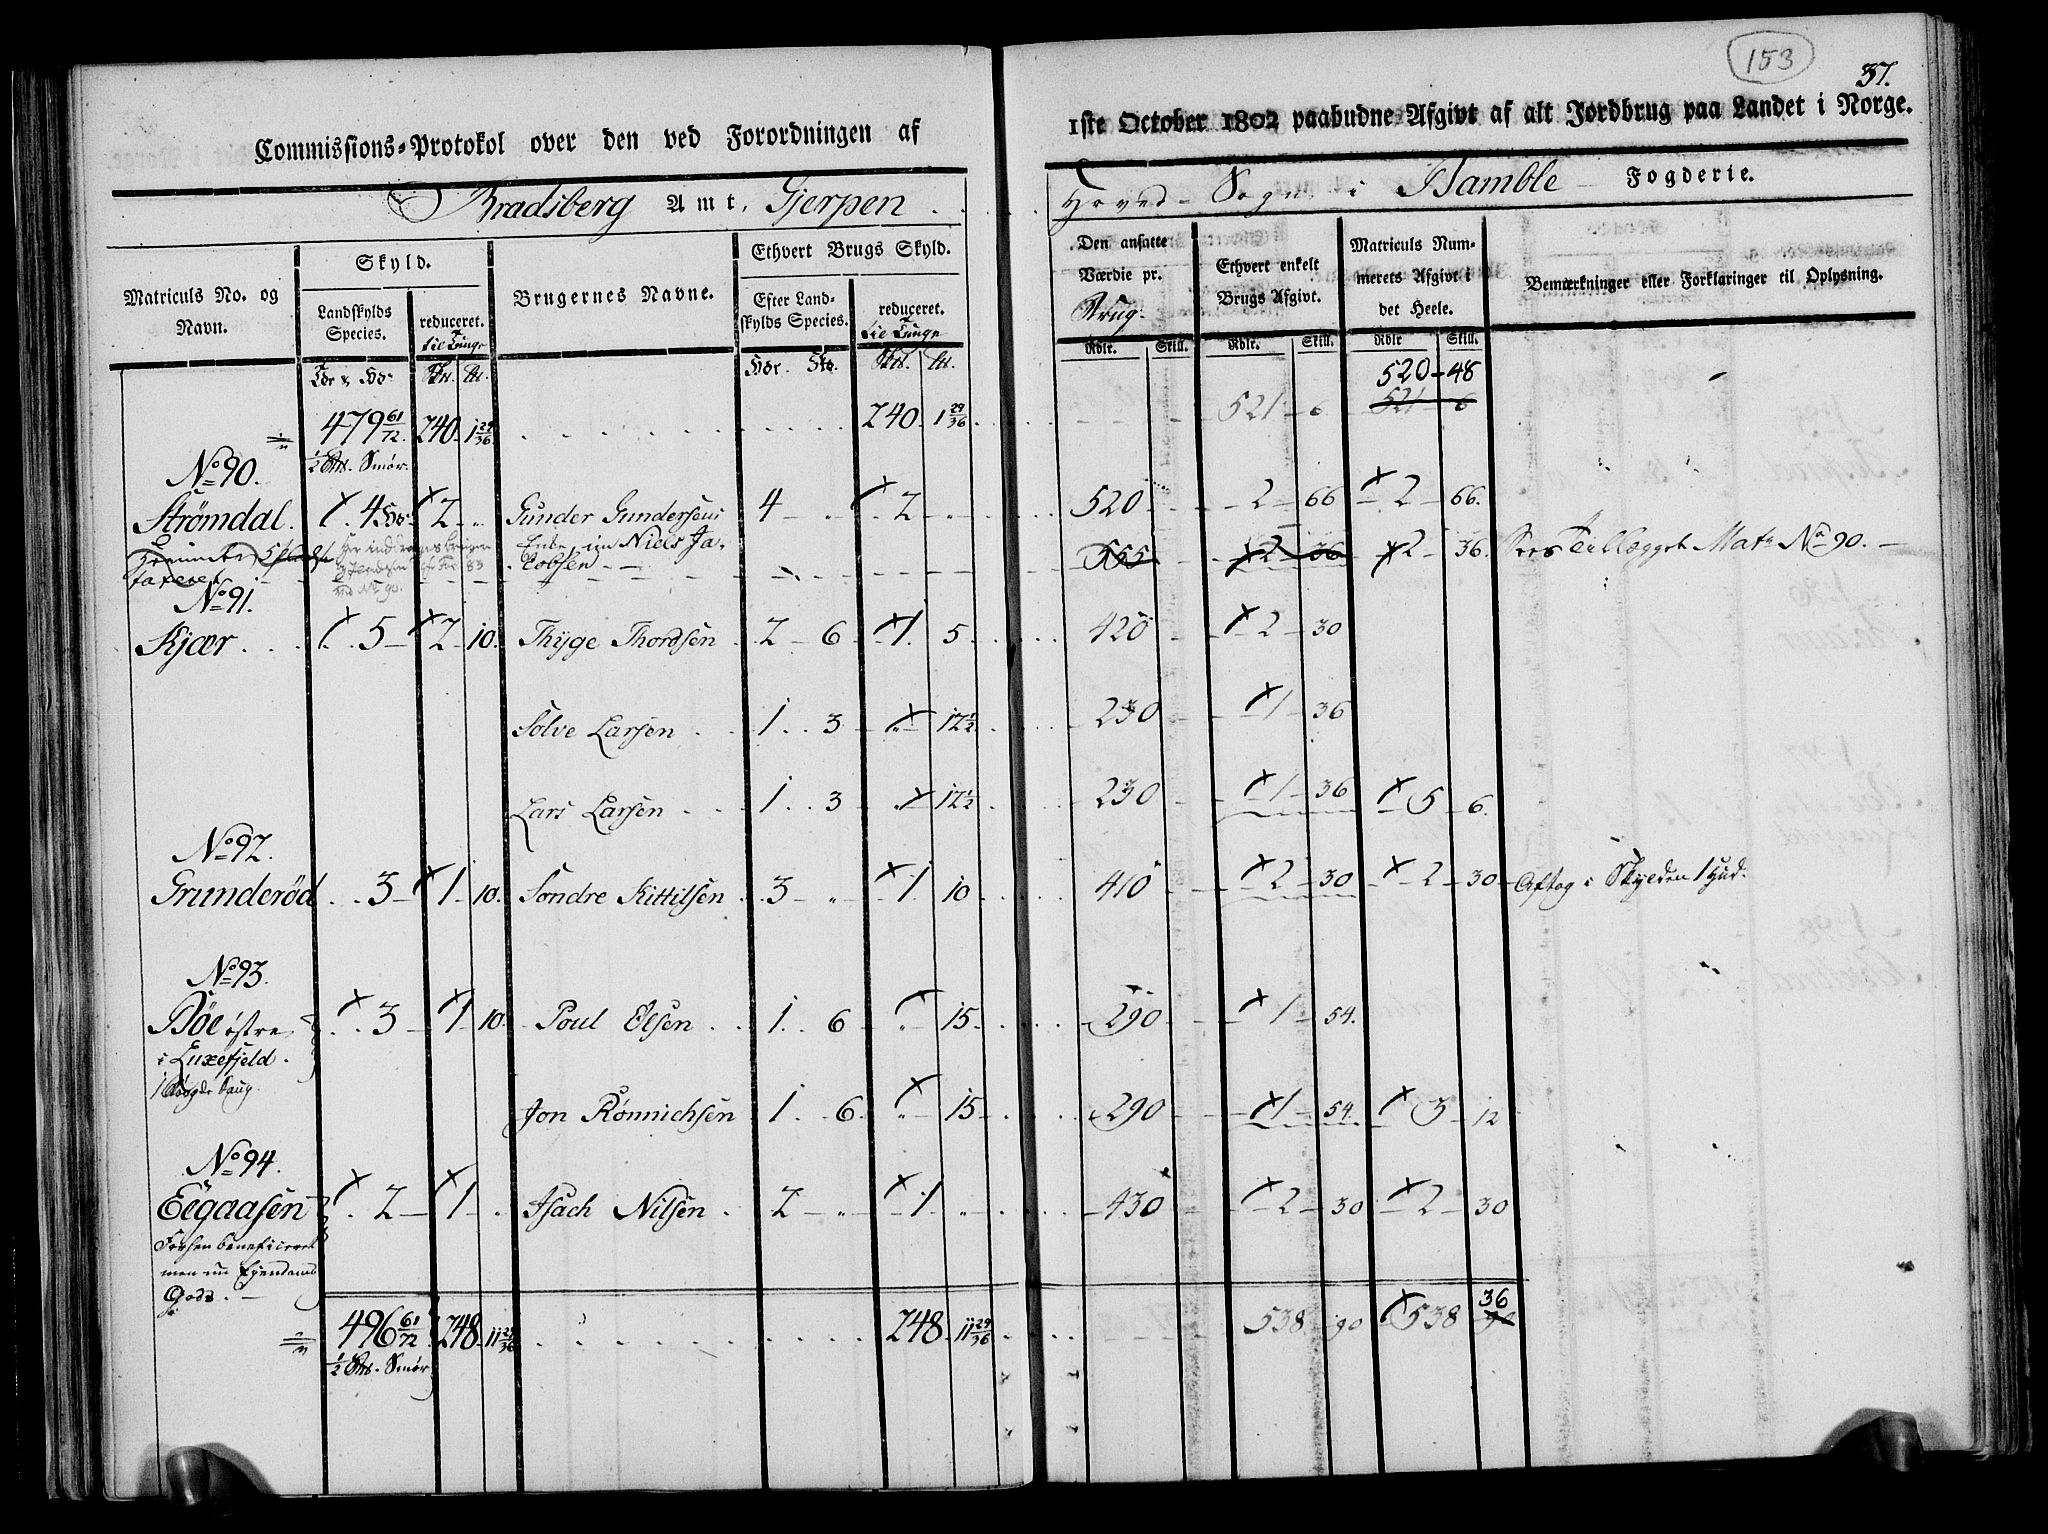 153
37.
Commissions-Protokol over den ved Forordningen af
1ste October 1802 paabudne Afgivt af alt Jordbrug paa Landet i Norge.
Bradsberg Amt, Gjerpen
Hoved-Sogn i Bamble Fogderie.
Matriculs No. og Navn.
Skyld.
Landskylds Species.
reduceret. til Tunge
Brugernes Navne.
Ethvert Brugs Skyld.
Efter Landskylds Species.
reduceret. til Tunge
Den ansatte Værdie pr. Brug.
Ethvert enkelt Brugs Afgivt.
Matriculs Nummerets Afgivt i det Heele.
Bemærkninger eller Forklaringer til Oplysning.
Rdlr. Skill. Rdlr. Skill. Rdlr Skill.
520 - 48
479 61/72. 240. 1 29/36. 240. 1 29/36 521 - 6 521 - 6
1/2 Smør.
No 90.
Strömdal. 4 2 - " Gunder Gundersens 4 - " 2 - " 520 2 - 66 2 - 66.
Enke, nu Niels Ja- 555 2 - 36 2 - 36. Sees Tillægget Matr No 90.
cobsen
No 91.
Kjær 5 - 2 - 10. Thÿge Thordsen 2 - 6 1. 5 420 2 - 30
Solve Larsen 1. 3 " 12 1/2 230 1 - 36
Lars Larsen 1. 3 " 12 1/2 230 1 - 36 5 - 6.
No 92.
Grunderöd 3 - 1 - 10. Sondre Kittilsen 3 - " 1. 10 410 2 - 30 2 - 30 Aftag i Skylden 1 Hud.
No 93.
Böe östre 3 - 1 - 10. Poul Olsen 1. 6 " 15. 290 1 - 54.
i Luxefjeld.
Jon Rönnichsen 1. 6. " 15 290 1 - 54. 3 - 12
No 94.
Eegaasen 2 - 1 - . Isach Nilsen 2 - " 1 " 430 2 - 30 2 - 30
Forhen beneficeret
men nu Ejendoms
Gods.
496 61/72 248. 11 29/36 248. 11 29/36 538 90 538 36
1/2 Smör